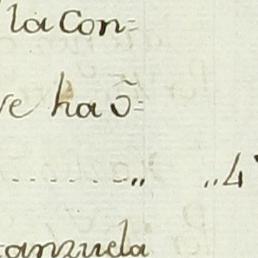 la con=
ve haõ=
........,, ,,4
anzuela